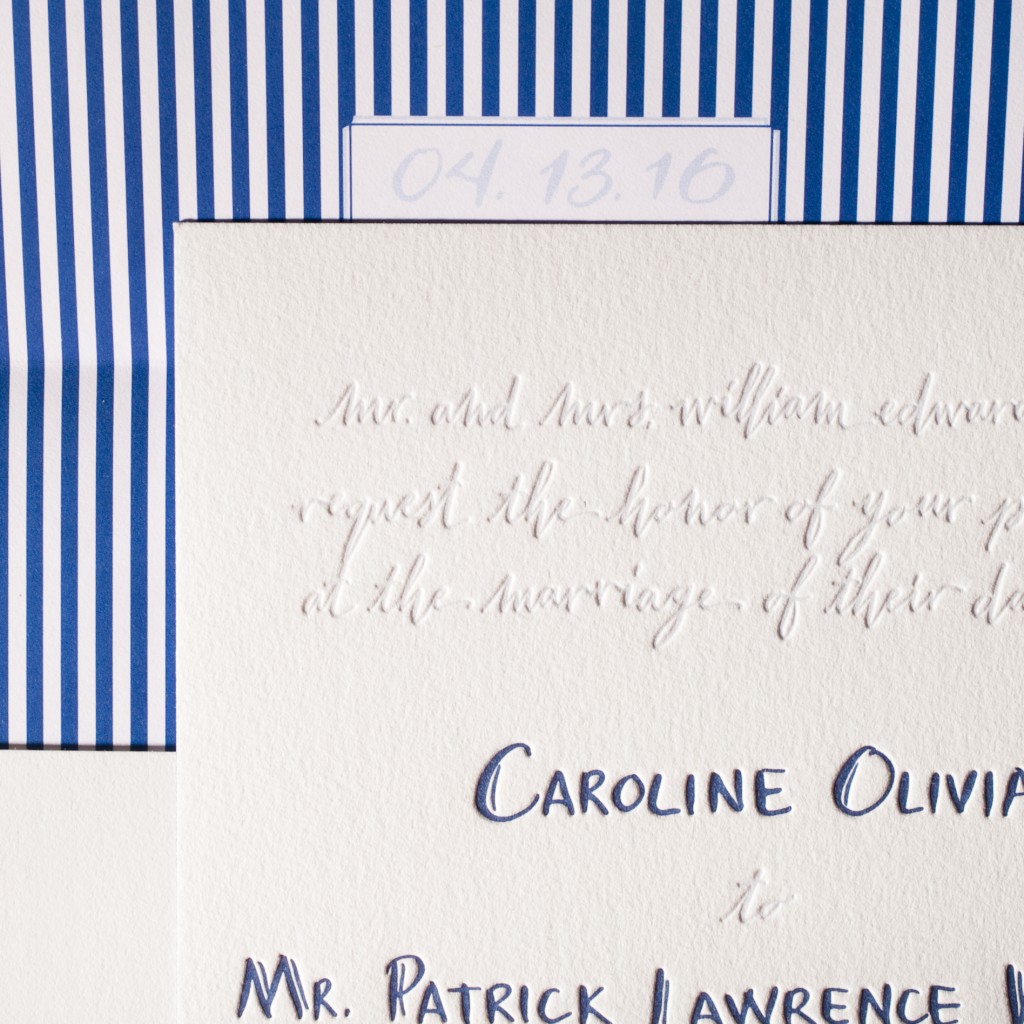 04.13.16
mr. and mrs. william edward
request the honor of your p
at the marriage of their da
CAROLINE OLIVIA
to
MR. PATRICK LAWRENCE